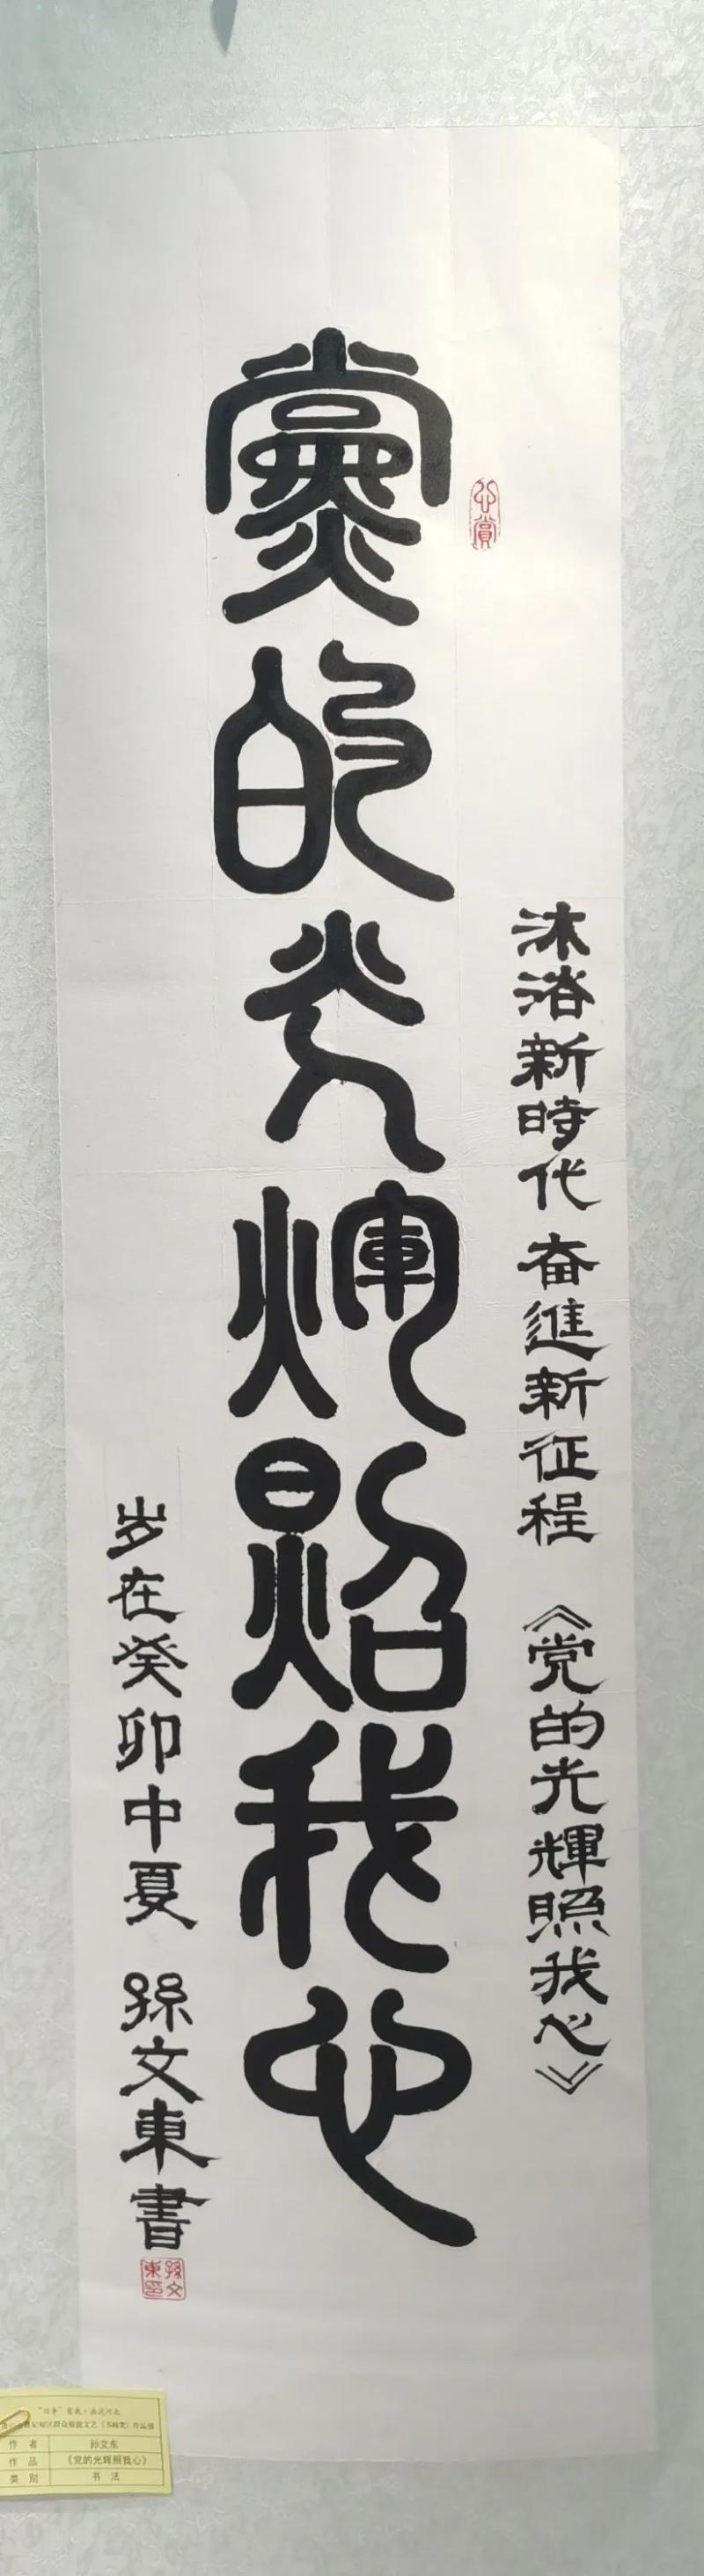 黨的光輝照我心
心賞
沐浴新時代 奋進新征程 《党的光輝照我心》
岁在癸卯中夏 孫文東書
孫文東印
作者 孙文东
作品 《党的光辉照我心》
类别 书法